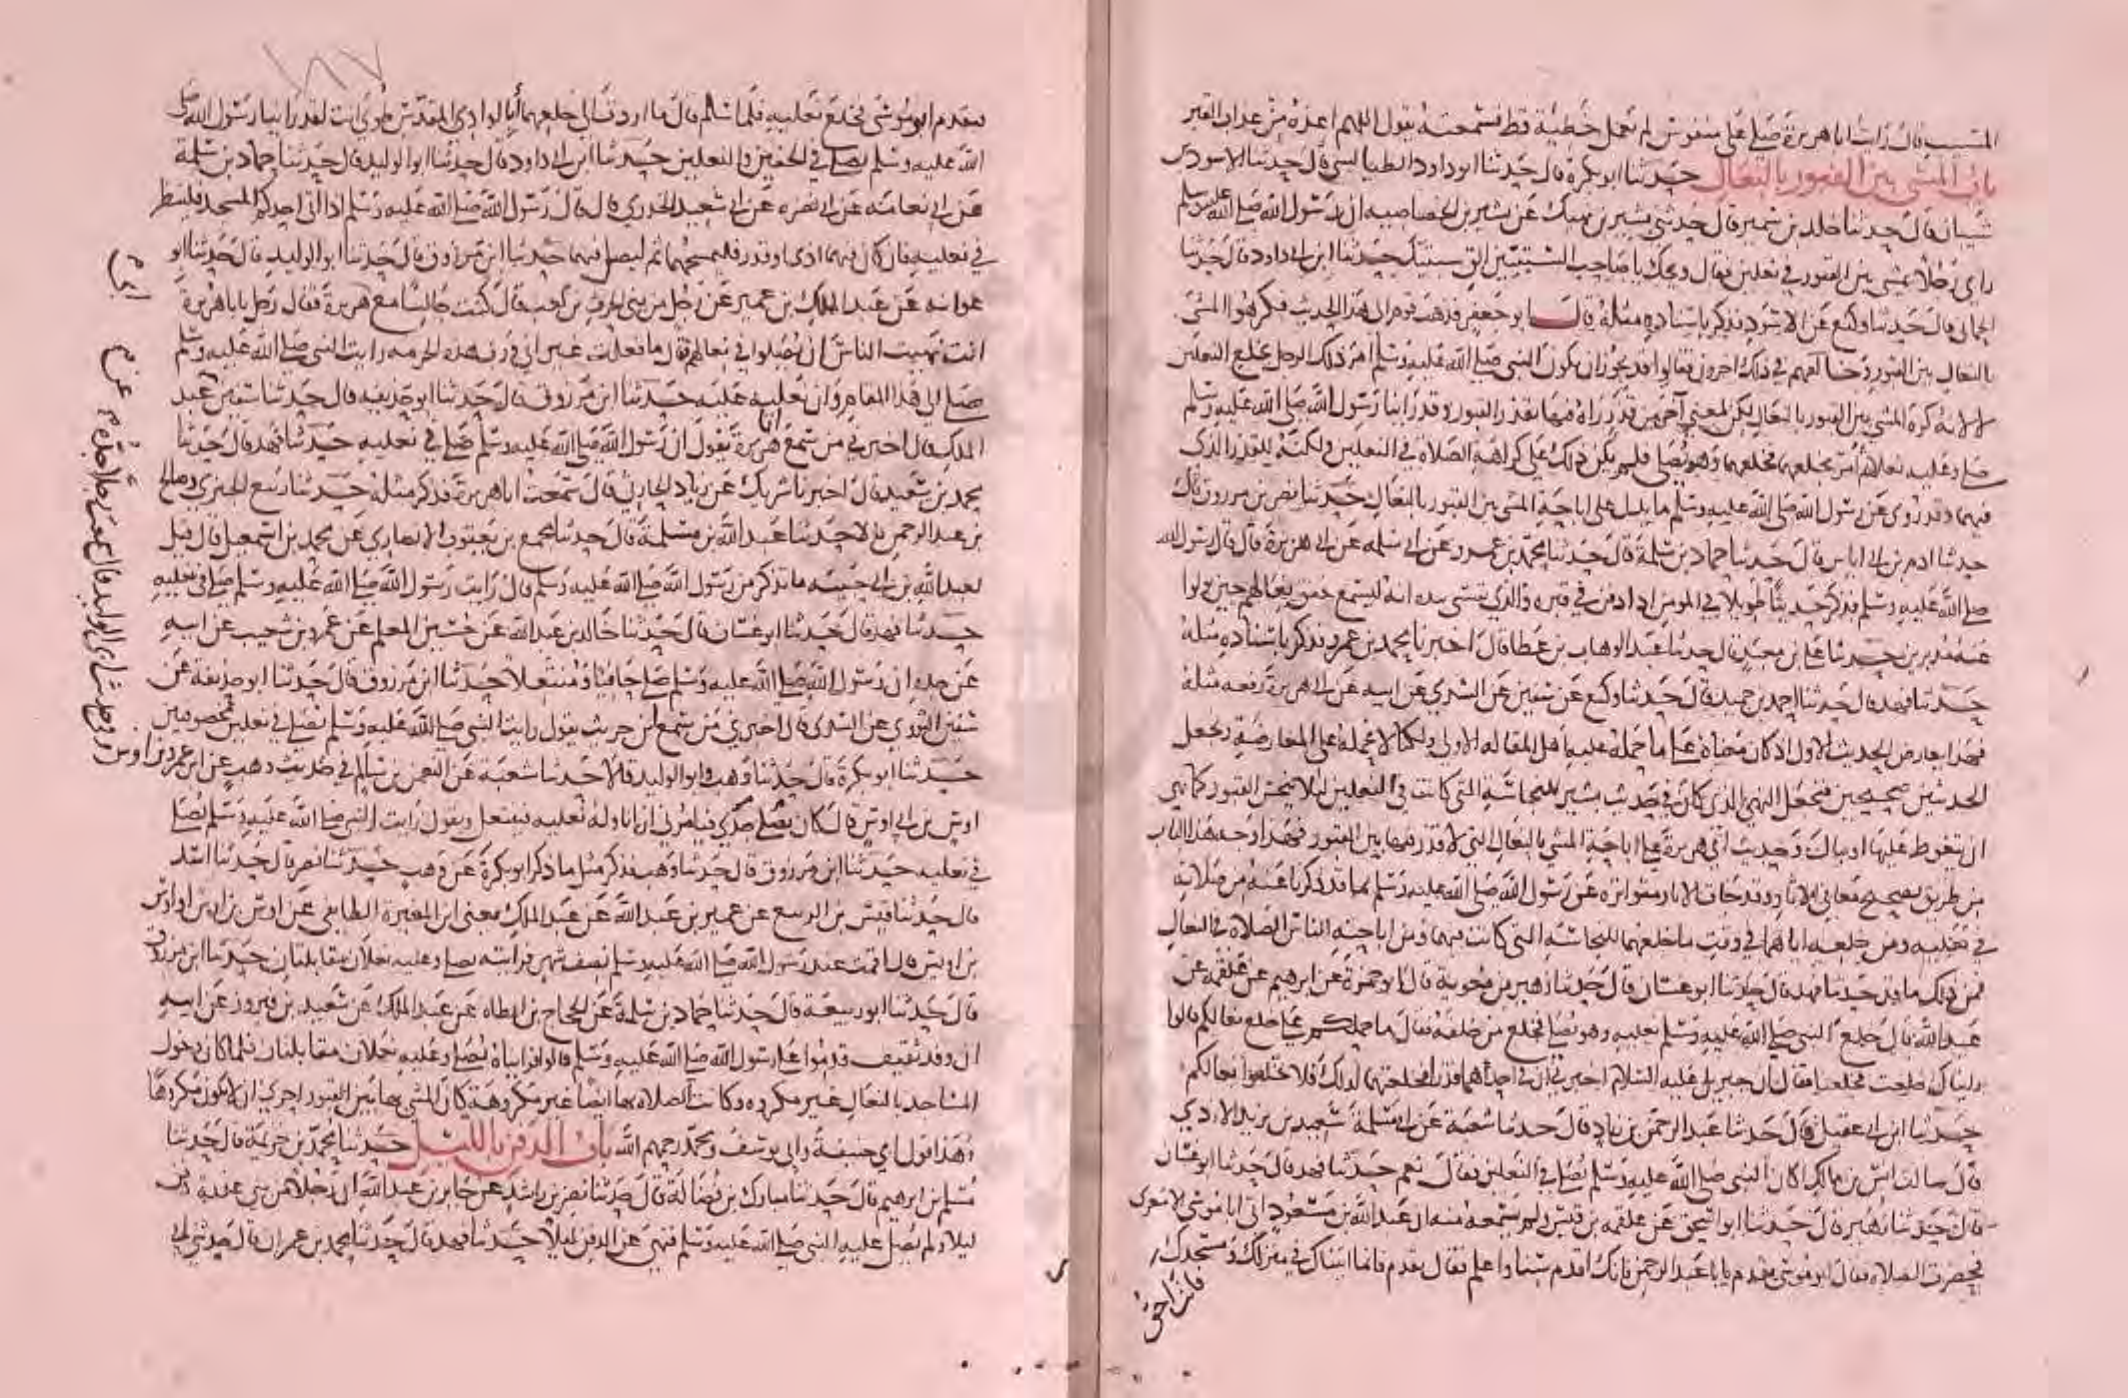 المسيب قال رايت ابا هريرة صلى على منفوس لم يعمل خطيئة قط فسمعته يقول اللهم اعذه من عذاب القبر
باب المشي بين القبور بالنعال حدثنا ابو بكرة قال حدثنا ابو داود الطيالسي قال حدثنا الاسود بن
شيبان قال حدثنا خالد بن سمير قال حدثني بشير بن نهيك عن بشير بن الخصاصيه ان رسول الله صلى الله عليه وسلم
راى رجلا يمشي بين القبور في نعلين فقال ويحك يا صاحب السبتيتين الق سبتيتك حدثنا ابن ابي داود قال حدثنا
الحماني قال حدثنا وكيع عن الاسود فذكر باسناده مثله قال ابو جعفر فذهب قوم الى هذا الحديث فكرهوا المشي
بالنعال بين القبور وخالفهم في ذلك اخرون فقالوا قد يجوز ان يكون النبي صلى الله عليه وسلم امر ذلك الرجل بخلع النعلين
لا لانه كره المشي بين القبور بالنعال لكن لمعنى آخر من قذر رآه فيهما يقذر القبور وقد راينا رسول الله صلى الله عليه وسلم
صلى وعليه نعلاه ثم امر بخلعهما فخلعهما وهو يصلي فلم يكن ذلك على كراهة الصلاة في النعلين ولكنه للقذر الذي
فيهما وقد روي عن رسول الله صلى الله عليه وسلم ما يدل على اباحة المشي بين القبور بالنعال حدثنا نصر بن مرزوق قال
حدثنا ادم بن ابي اياس قال حدثنا حماد بن سلمة قال حدثنا محمد بن عمرو عن ابي سلمه عن ابي هريرة قال قال رسول الله
صلى الله عليه وسلم فذكر حديثا طويلا في المومن اذا دفن في قبره والذي نفسي بيده انه ليسمع خفق نعالهم حين تولوا
عنه مدبرين حدثنا علي بن معبد قال حدثنا عبد الوهاب بن عطا قال اخبرنا محمد بن عمرو فذكر باسناده مثله
حدثنا فهد قال حدثنا احمد بن حميد قال حدثنا وكيع عن سفين عن السدي عن ابيه عن ابي هريرة رفعه مثله
فهذا يعارض الحديث الاول اذ كان معناه على ما حمله عليه اهل المقالة الاولى ولكنا لا نحمله على المعارضة ونجعل
الحديثين صحيحين فنجعل النهي الذي كان في حديث بشير للنجاسة التي كانت في النعلين لئلا ينجس القبور كما نهى
ان يتغوط عليها او يبال وحديث ابي هريرة على اباحة المشي بالنعال التي لا قذر فيها بين القبور فهذا وجه هذا الباب
من طريق تصحيح معاني الاثار وقد جات الاثار متواترة عن رسول الله صلى الله عليه وسلم بما قد ذكرنا عنه من صلاته
في نعليه ومن خلعه اياهما في وقت ما خلعهما للنجاسة التي كانت فيهما ومن اباحته الناس الصلاة في النعال
فمن ذلك ما قد حدثنا فهد قال حدثنا ابو غسان قال حدثنا زهير بن معوية قال ابو حمزة عن ابرهيم عن علقمه عن
عبد الله قال خلع النبي صلى الله عليه وسلم نعليه وهو يصلي فخلع من خلفه فقال ما حملكم على خلع نعالكم قالوا
رايناك خلعت فخلعنا فقال ان جبريل عليه السلام اخبرني ان في احداهما قذرا فخلعتهما لذلك فلا تخلعوا نعالكم
حدثنا ابن ابي عقيل قال حدثنا عبد الرحمن بن زياد قال حدثنا شعبة عن ابي مسلمة سعيد بن يزيد الازدي
قال سالت انس بن مالك اكان النبي صلى الله عليه وسلم يصلي في النعلين فقال نعم حدثنا فهد قال حدثنا ابو غسان
قال حدثنا زهير قال حدثنا ابو اسحق عن علقمه بن قيس ولم يسمعه منه ان عبد الله بن مسعود اتى ابا موسى الاشعري
فحضرت الصلاة فقال ابو موسى تقدم يا ابا عبد الرحمن فانك اقدم سنا واعلم فقال تقدم فانما اتيناك في منزلك ومسجدك
فانت احق
١٨٧
فتقدم ابو موسى فخلع نعليه فلما سلم قال ما اردت الى خلعهما أبالوادي المقدس طوى انت لقد راينا رسول الله صلى
الله عليه وسلم يصلي في الخفين والنعلين حدثنا ابن ابي داود قال حدثنا ابو الوليد قال حدثنا حماد بن سلمة
عن ابي نعامه عن ابي نضره عن ابي سعيد الخدري قال قال رسول الله صلى الله عليه وسلم اذا اتى احدكم المسجد فلينظر
في نعليه فان كان فيهما اذى او قذر فليمسحهما ثم ليصل فيهما حدثنا ابن مرزوق قال حدثنا ابو الوليد قال حدثنا ابو
عوانه عن عبد الملك بن عمير عن رجل من بني الحرث بن كعب قال كنت جالسا مع هريرة فقال رجل يا باهريرة
انت نهيت الناس ان يصلوا في نعالهم قال ما فعلت غير اني ورب هذه الحرمه رايت النبي صلى الله عليه وسلم
صلى الى هذا المقام وان نعليه عليه حدثنا ابن مرزوق قال حدثنا ابو حذيفه قال حدثنا سفين عن عبد
الملك قال اخبرني من سمع ابا هريرة يقول ان رسول الله صلى الله عليه وسلم صلى في نعليه حدثنا فهد قال حدثنا
محمد بن سعيد قال اخبرنا شريك عن زياد الحارثي قال سمعت ابا هريرة فذكر مثله حدثنا ربيع الجيزي وصالح
بن عبد الرحمن قالا حدثنا عبد الله بن مسلمة قال حدثنا مجمع بن يعقوب الانصاري عن محمد بن اسمعيل قال قيل
لعبد الله بن ابي حبيبه ما تذكر من رسول الله صلى الله عليه وسلم قال رايت رسول الله صلى الله عليه وسلم صلى في نعليه
حدثنا فهد قال حدثنا ابو غسان قال حدثنا خالد بن عبد الله عن حسين المعلم عن عمرو بن شعيب عن ابيه
عن جده ان رسول الله صلى الله عليه وسلم صلى حافيا ومنتعلا حدثنا ابن مرزوق قال حدثنا ابو حذيفة عن
سفين الثوري عن السدي قال اخبرني من سمع ابن حريث يقول رايت النبي صلى الله عليه وسلم يصلي في نعلين مخصوفتين
حدثنا ابو بكرة قال حدثنا وهب وابو الوليد قالا حدثنا شعبة عن النعمن بن سالم في حديث وهب عن ابن عمرو بن اوس
اوس بن ابي اوس قال كان يصلي جدي فيامرني ان اناوله نعليه فينتعل ويقول رايت النبي صلى الله عليه وسلم يصلي
في نعليه حدثنا ابن مرزوق قال حدثنا وهب فذكر مثل ما ذكر ابو بكرة عن وهب حدثنا نصر قال حدثنا اسد
قال حدثنا قيس بن الربيع عن عمير بن عبد الله عن عبد الملك يعني ابن المغيرة الطائفي عن اوس بن اوس او اوس
بن اويس قال اقمت عند رسول الله صلى الله عليه وسلم نصف شهر فرايته يصلي وعليه نعلان مقابلتان حدثنا ابن مرزوق
قال حدثنا ابو ربيعة قال حدثنا حماد بن سلمة عن الحجاج بن ارطاه عن عبد الملك عن سعيد بن فيروز عن ابيه
ان وفد ثقيف قدموا على رسول الله صلى الله عليه وسلم قالوا فرايناه يصلي وعليه نعلان مقابلتان فلما كان دخول
المساجد بالنعال غير مكروه وكانت الصلاة بها ايضا غير مكروهة كان المشي بها بين القبور احرى ان لا يكون مكروها
وهذا قول ابي حنيفة وابي يوسف ومحمد رحمهم الله باب الدفن بالليل حدثنا محمد بن خزيمة قال حدثنا
مسلم بن ابرهيم قال حدثنا مبارك بن فضالة قال حدثنا نصر بن راشد عن جابر بن عبد الله ان رجلا من بني عذرة دفن
ليلا ولم يصل عليه النبي صلى الله عليه وسلم فنهى عن الدفن ليلا حدثنا فهد قال حدثنا محمد بن عمران قال حدثني ابي